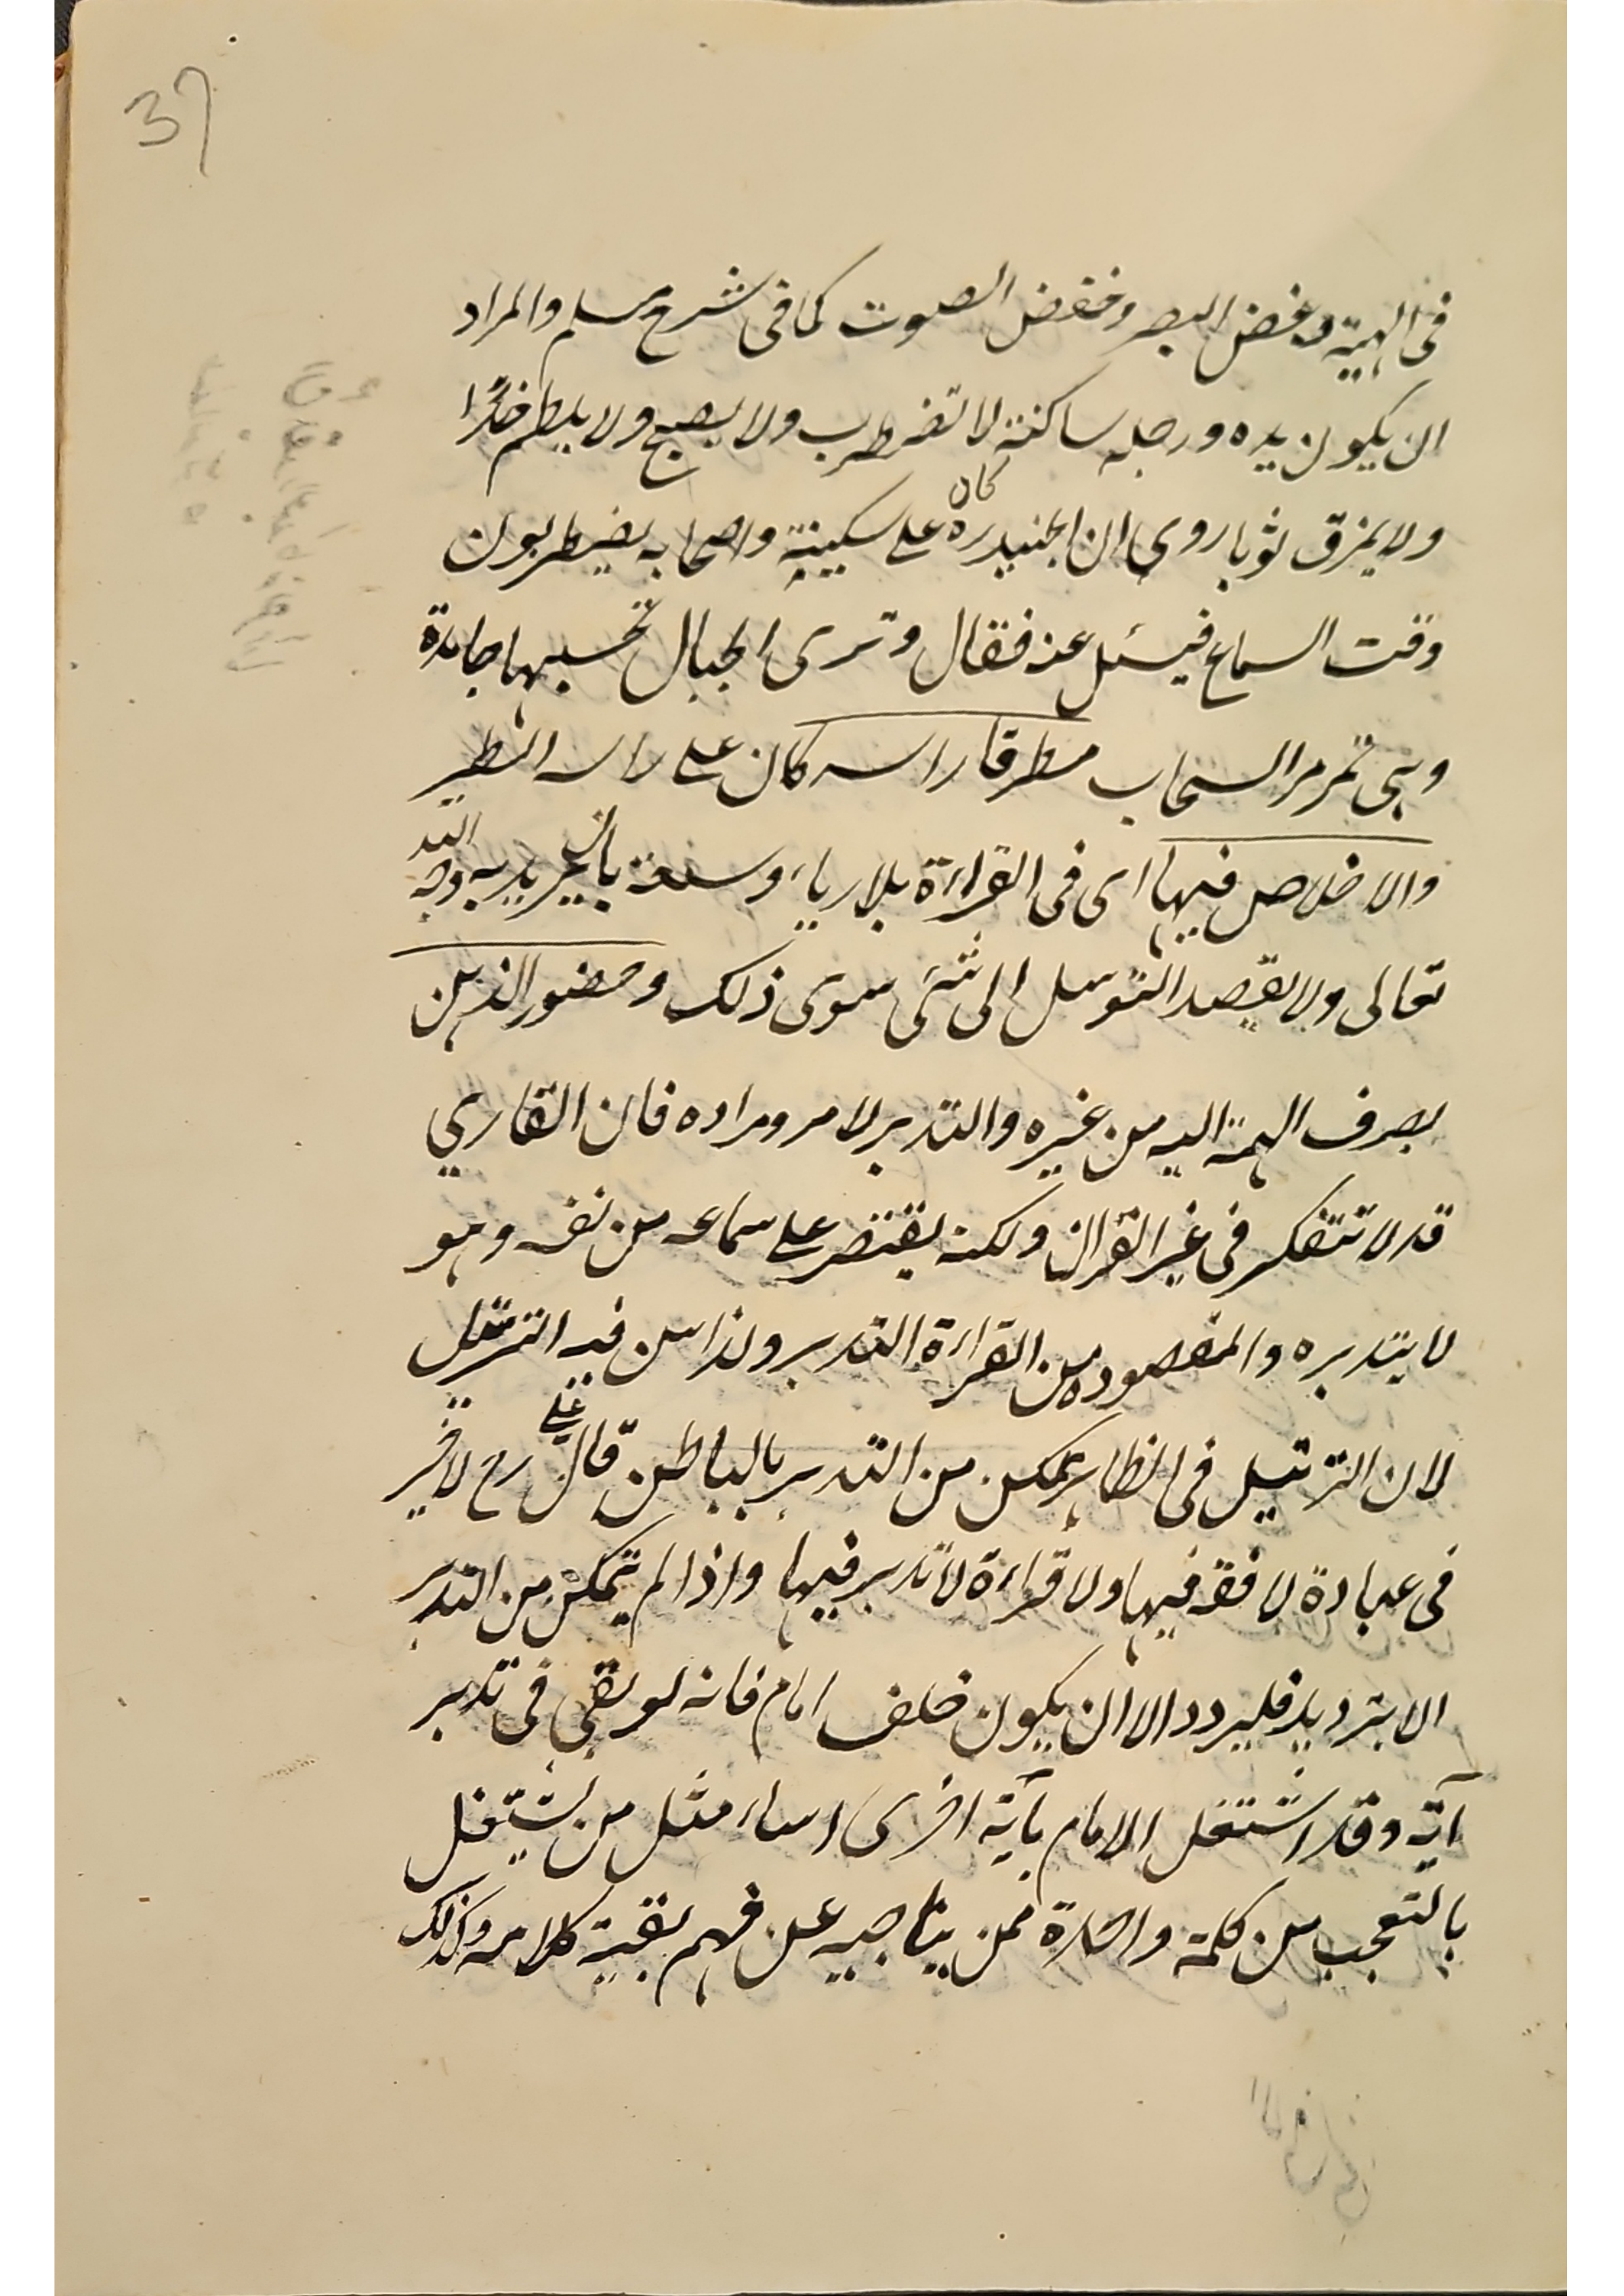 37
فى الهيئة وغض البصر وخفض الصوت كما فى شرح مسلم والمراد
ان يكون يده ورجله ساكنة لا تضطرب ولا يصيح ولا يلطم خدًا
ولا يمزق ثوبا روى ان الجنيد ره كان على سكينة واصحابه يضطربون
وقت السماع فيسئل عنه فقال وترى الجبال تحسبها جامدة
وهى تمر مر السحاب مطرقا راسه كان على راسه الطير
والاخلاص فيها اى فى القراءة بلا رياء وسمعة بان يريد به وجه الله
تعالى ولا يقصد التوسل الى شئ سوى ذلك وحضور الذهن
بصرف الهمة اليه من غيره والتدبر لامر ومراده فان القاري
قد لا تتفكر فى غير القرآن ولكنه يقتصر على سماعه من نفسه وهو
لا يتدبره والمقصود من القراءة التدبر ولذا سن فيه الترتيل
لان الترتيل فى الظاهر تمكن من التدبر بالباطن قال على رح لا خير
فى عبادة لا فقه فيها ولا قراءة لا تدبر فيها واذا لم يتمكن من التدبر
الا بترديد فليردد الا ان يكون خلف امام فانه لو بقى فى تدبر
آية وقد اشتغل الامام بآية اخرى اساء مثل من يشتغل
بالتعجب من كلمة واحدة ممن يناجيه عن فهم بقية كلامه وكذلك